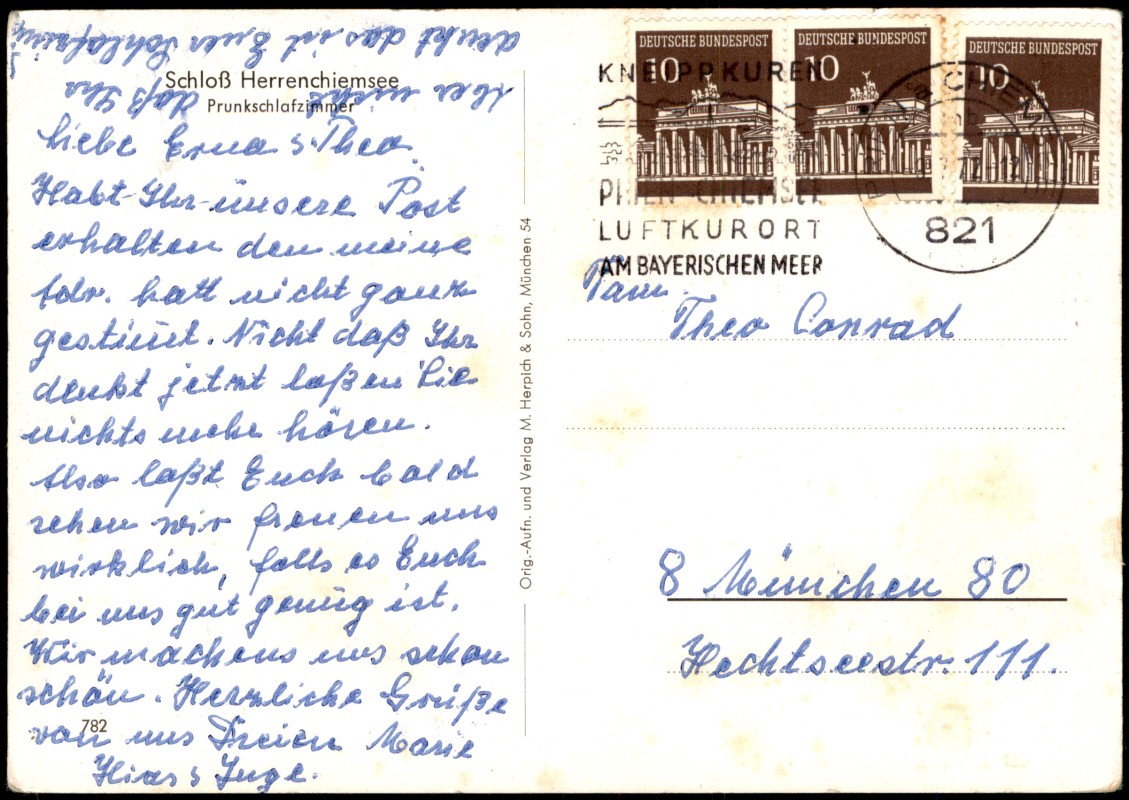 Schloß Herrenchiemsee
Prunkschlafzimmer
Liebe Erna & Theo.
Habt Ihr unsere Post
erhalten den meine
Adr. hatt nicht ganz
gestimt. Nicht daß Ihr
denkt jetzt laßen Sie
nichts mehr hören.
Also laßt Euch bald
sehen wir freuen uns
wirklich, falls es Euch
bei uns gut genug ist.
Wir machens uns schon
schön. Herzliche Grüße
von uns Dreien Marie
Hias & Inge.
782
Aber nicht daß Ihr
denkt das ist Euer Schlafzimmer
Orig.-Aufn. und Verlag M. Herpich & Sohn, München 54
DEUTSCHE BUNDESPOST
10
DEUTSCHE BUNDESPOST
10
DEUTSCHE BUNDESPOST
10
KNEIPPKUREN
PRIEN - CHIEMSEE
LUFTKURORT
AM BAYERISCHEN MEER
821
Fam.
Theo Conrad
8 München 80
Hechtseestr. 111.